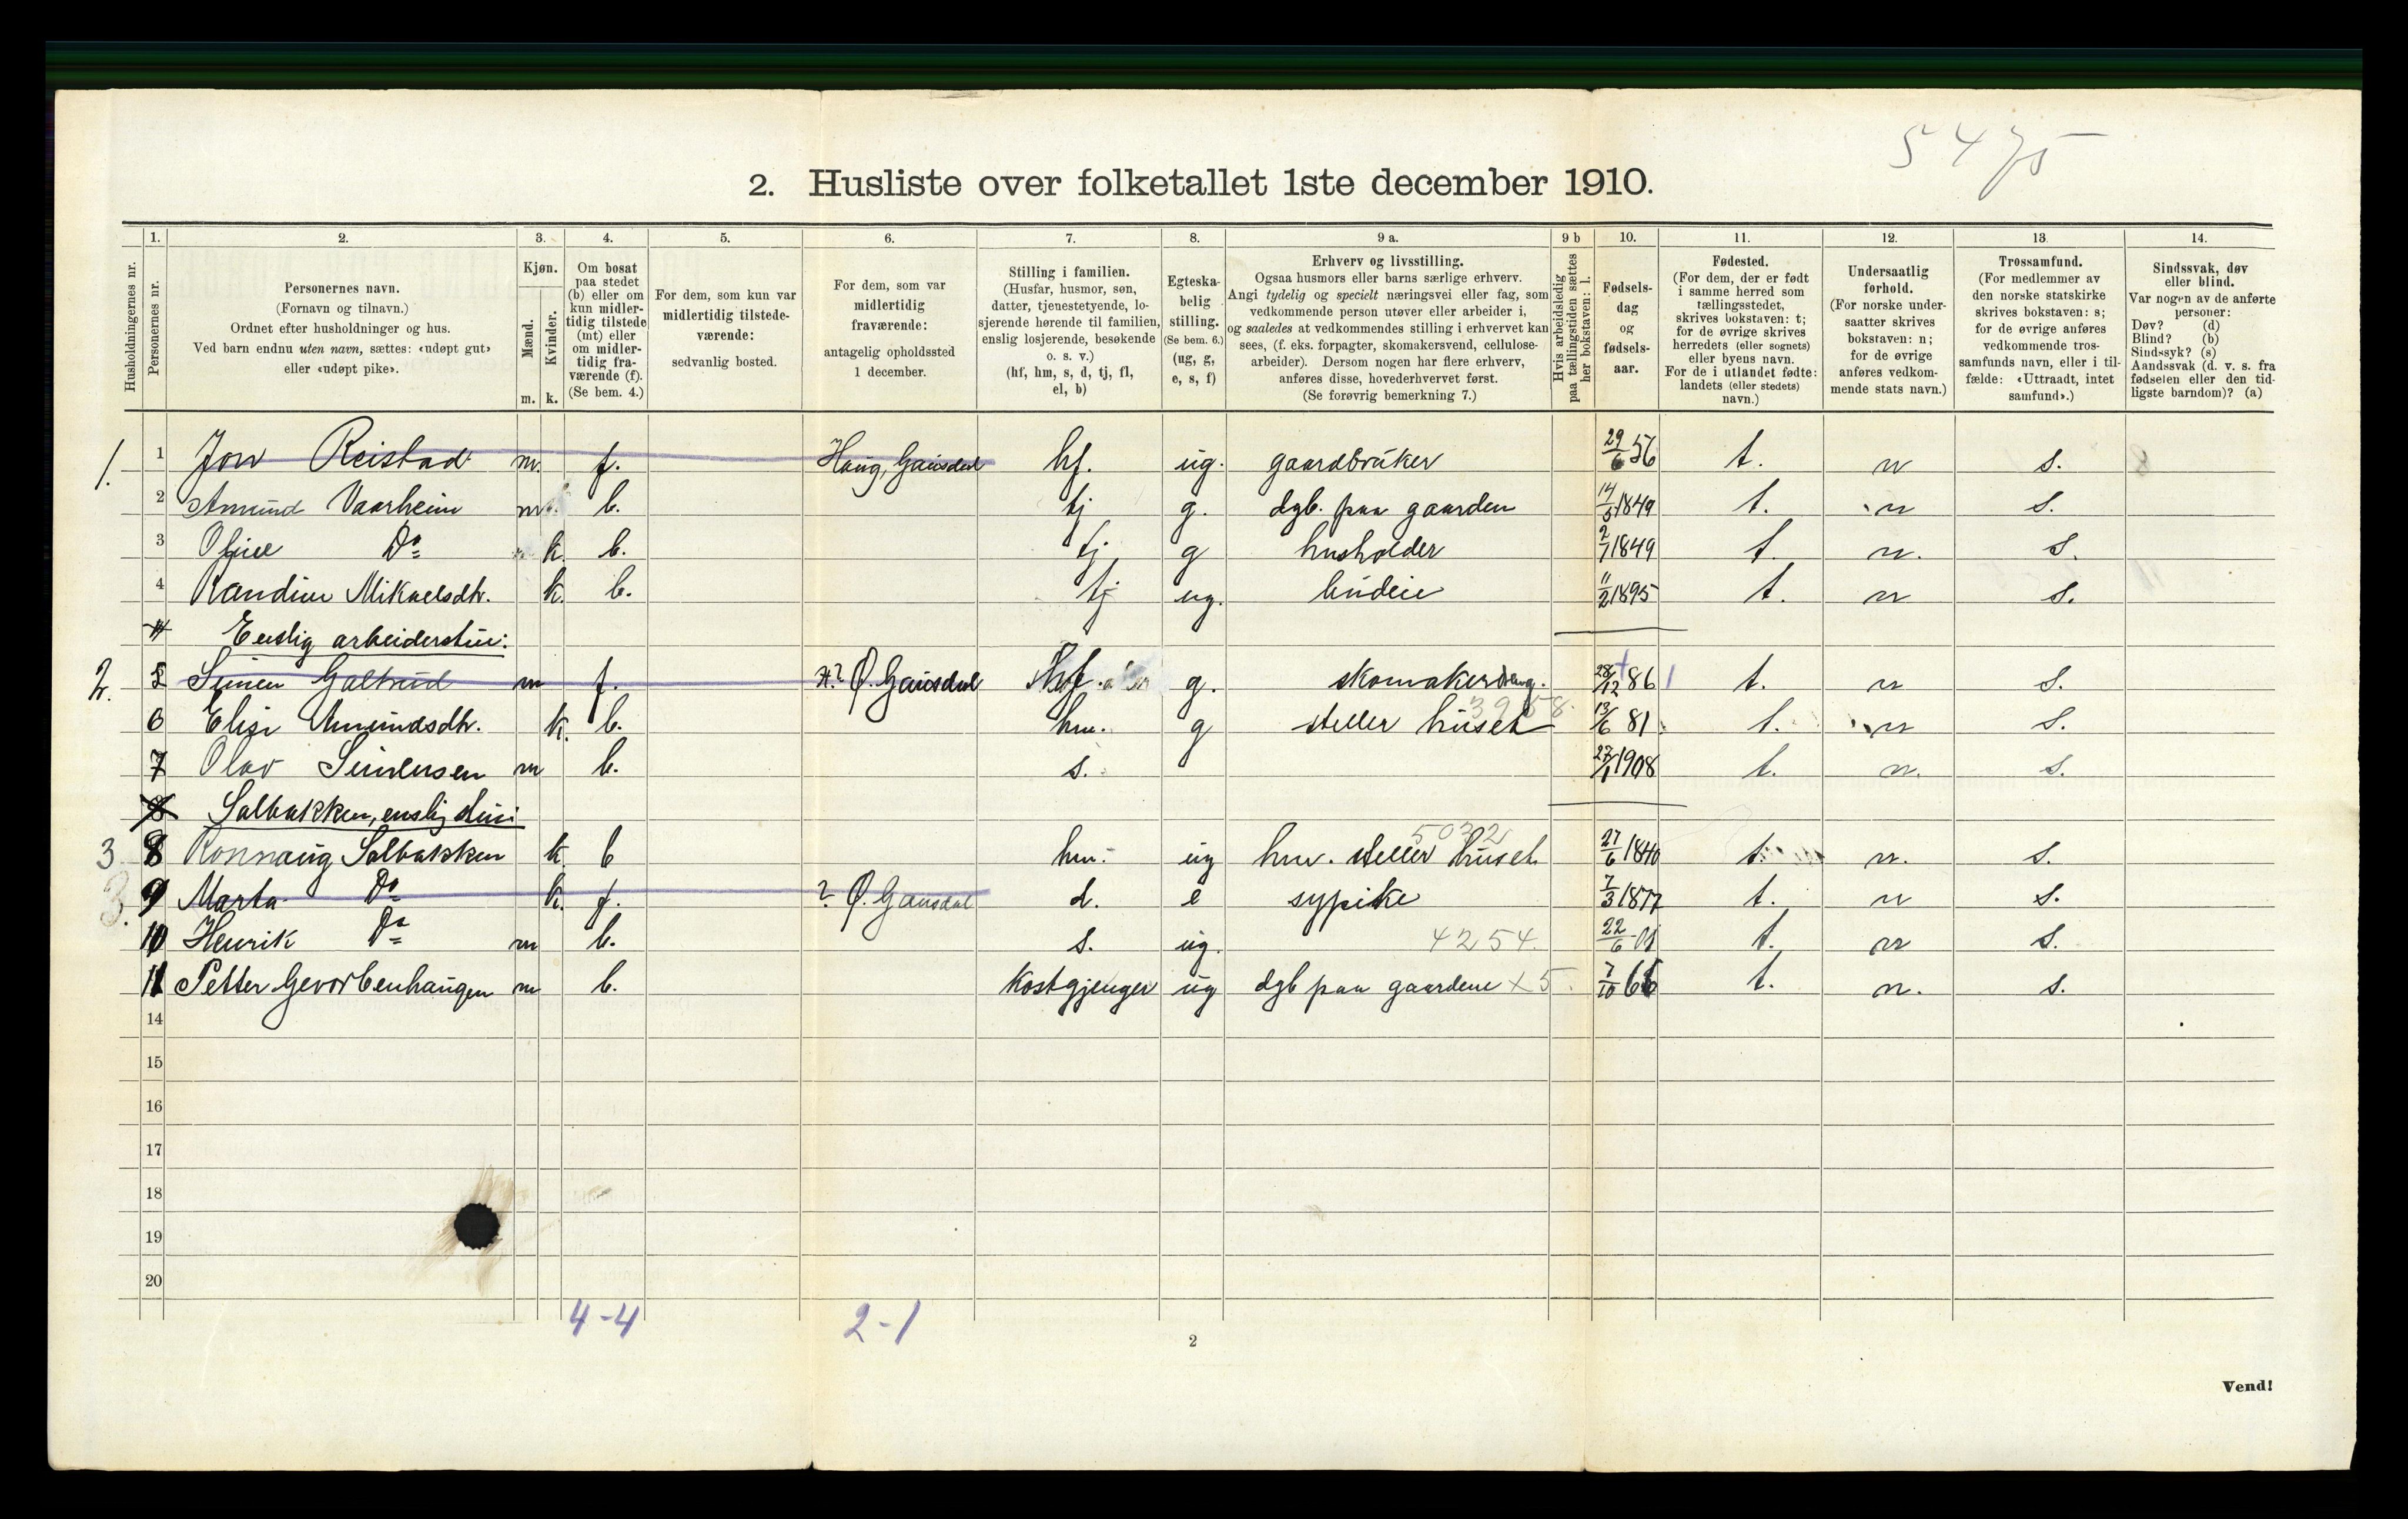 5475
2. Husliste over folketallet 1ste december 1910.
Husholdningernes nr.
1.
Personernes nr.
2.
Personernes navn.
(Fornavn og tilnavn.)
Ordnet efter husholdninger og hus.
Ved barn endnu uten navn, sættes: «udøpt gut»
eller «udøpt pike».
3.
Kjøn.
Mænd.
Kvinder.
m. k.
4.
Om bosat
paa stedet
(b) eller om
kun midler-
tidig tilstede
(mt) eller
om midler-
tidig fra-
værende (f).
(Se bem. 4.)
5.
For dem, som kun var
midlertidig tilstede-
værende:
sedvanlig bosted.
6.
For dem, som var
midlertidig
fraværende:
antagelig opholdssted
1 december.
7.
Stilling i familien.
(Husfar, husmor, søn,
datter, tjenestetyende, lo-
sjerende hørende til familien,
enslig losjerende, besøkende
o. s. v.)
(hf, hm, s, d, tj, fl,
el, b)
8.
Egteska-
belig
stilling.
(Se bem. 6.)
(ug, g,
e, s, f)
9 a.
Erhverv og livsstilling.
Ogsaa husmors eller barns særlige erhverv.
Angi tydelig og specielt næringsvei eller fag, som
vedkommende person utøver eller arbeider i,
og saaledes at vedkommendes stilling i erhvervet kan
sees, (f. eks. forpagter, skomakersvend, cellulose-
arbeider). Dersom nogen har flere erhverv,
anføres disse, hovederhvervet først.
(Se forøvrig bemerkning 7.)
9 b
Hvis arbeidsledig
paa tællingstiden sættes
her bokstaven: l.
10.
Fødsels-
dag
og
fødsels-
aar.
11.
Fødested.
(For dem, der er født
i samme herred som
tællingsstedet,
skrives bokstaven: t;
for de øvrige skrives
herredets (eller sognets)
eller byens navn.
For de i utlandet fødte:
landets (eller stedets)
navn.)
12.
Undersaatlig
forhold.
(For norske under-
saatter skrives
bokstaven: n;
for de øvrige
anføres vedkom-
mende stats navn.)
13.
Trossamfund.
(For medlemmer av
den norske statskirke
skrives bokstaven: s;
for de øvrige anføres
vedkommende tros-
samfunds navn, eller i til-
fælde: «Uttraadt, intet
samfund».)
14.
Sindssvak, døv
eller blind.
Var nogen av de anførte
personer:
Døv? (d)
Blind? (b)
Sindssyk? (s)
Aandssvak (d. v. s. fra
fødselen eller den tid-
ligste barndom)? (a)
1. 1 Jon Reistad m. f. Haug, Gausdal hf. ug. gaardbruker 29/6 56 t. n s.
2 Amund Vaarheim m b. tj g. dgb. paa gaarden 14/5 1849 t. n s.
3 Do k. b. tj g husholder 2/7 1849 t. n. s.
4 Randine Mikaelsdtr. k. b. tj ug. budeie 11/2 1895 t. n s.
Enslig arbeiderstue:
2. 5 Simen Galtrud m f. Ø. Gausdal g. skomakerdreng. 28/12 86 t. n s.
6 Elise Amundsdtr. k. b. hm. g steller huset 13/6 81 t. n s.
7 Olav Simensen m b. s. 27/1 1908 t. n. s.
Solbakken, enslig stue:
3 8 Ronnaug Solbakken k. b hm. ug hm. steller huset 5032 27/6 1840 t. n. s.
3. 9 Marta Do k. f. ? Ø. Gausdal d. e sypike 7/3 1877 t. n s.
10 Henrik Do m b. s. ug. 4254. 22/6 01 t. n s.
11 Petter Gevorbenhaugen m b. kostgjenger ug dgb paa gaardene x 5. 7/10 66 t. n. s.
14
15
16
17
18
19
20
4-4 2-1
2
Vend!